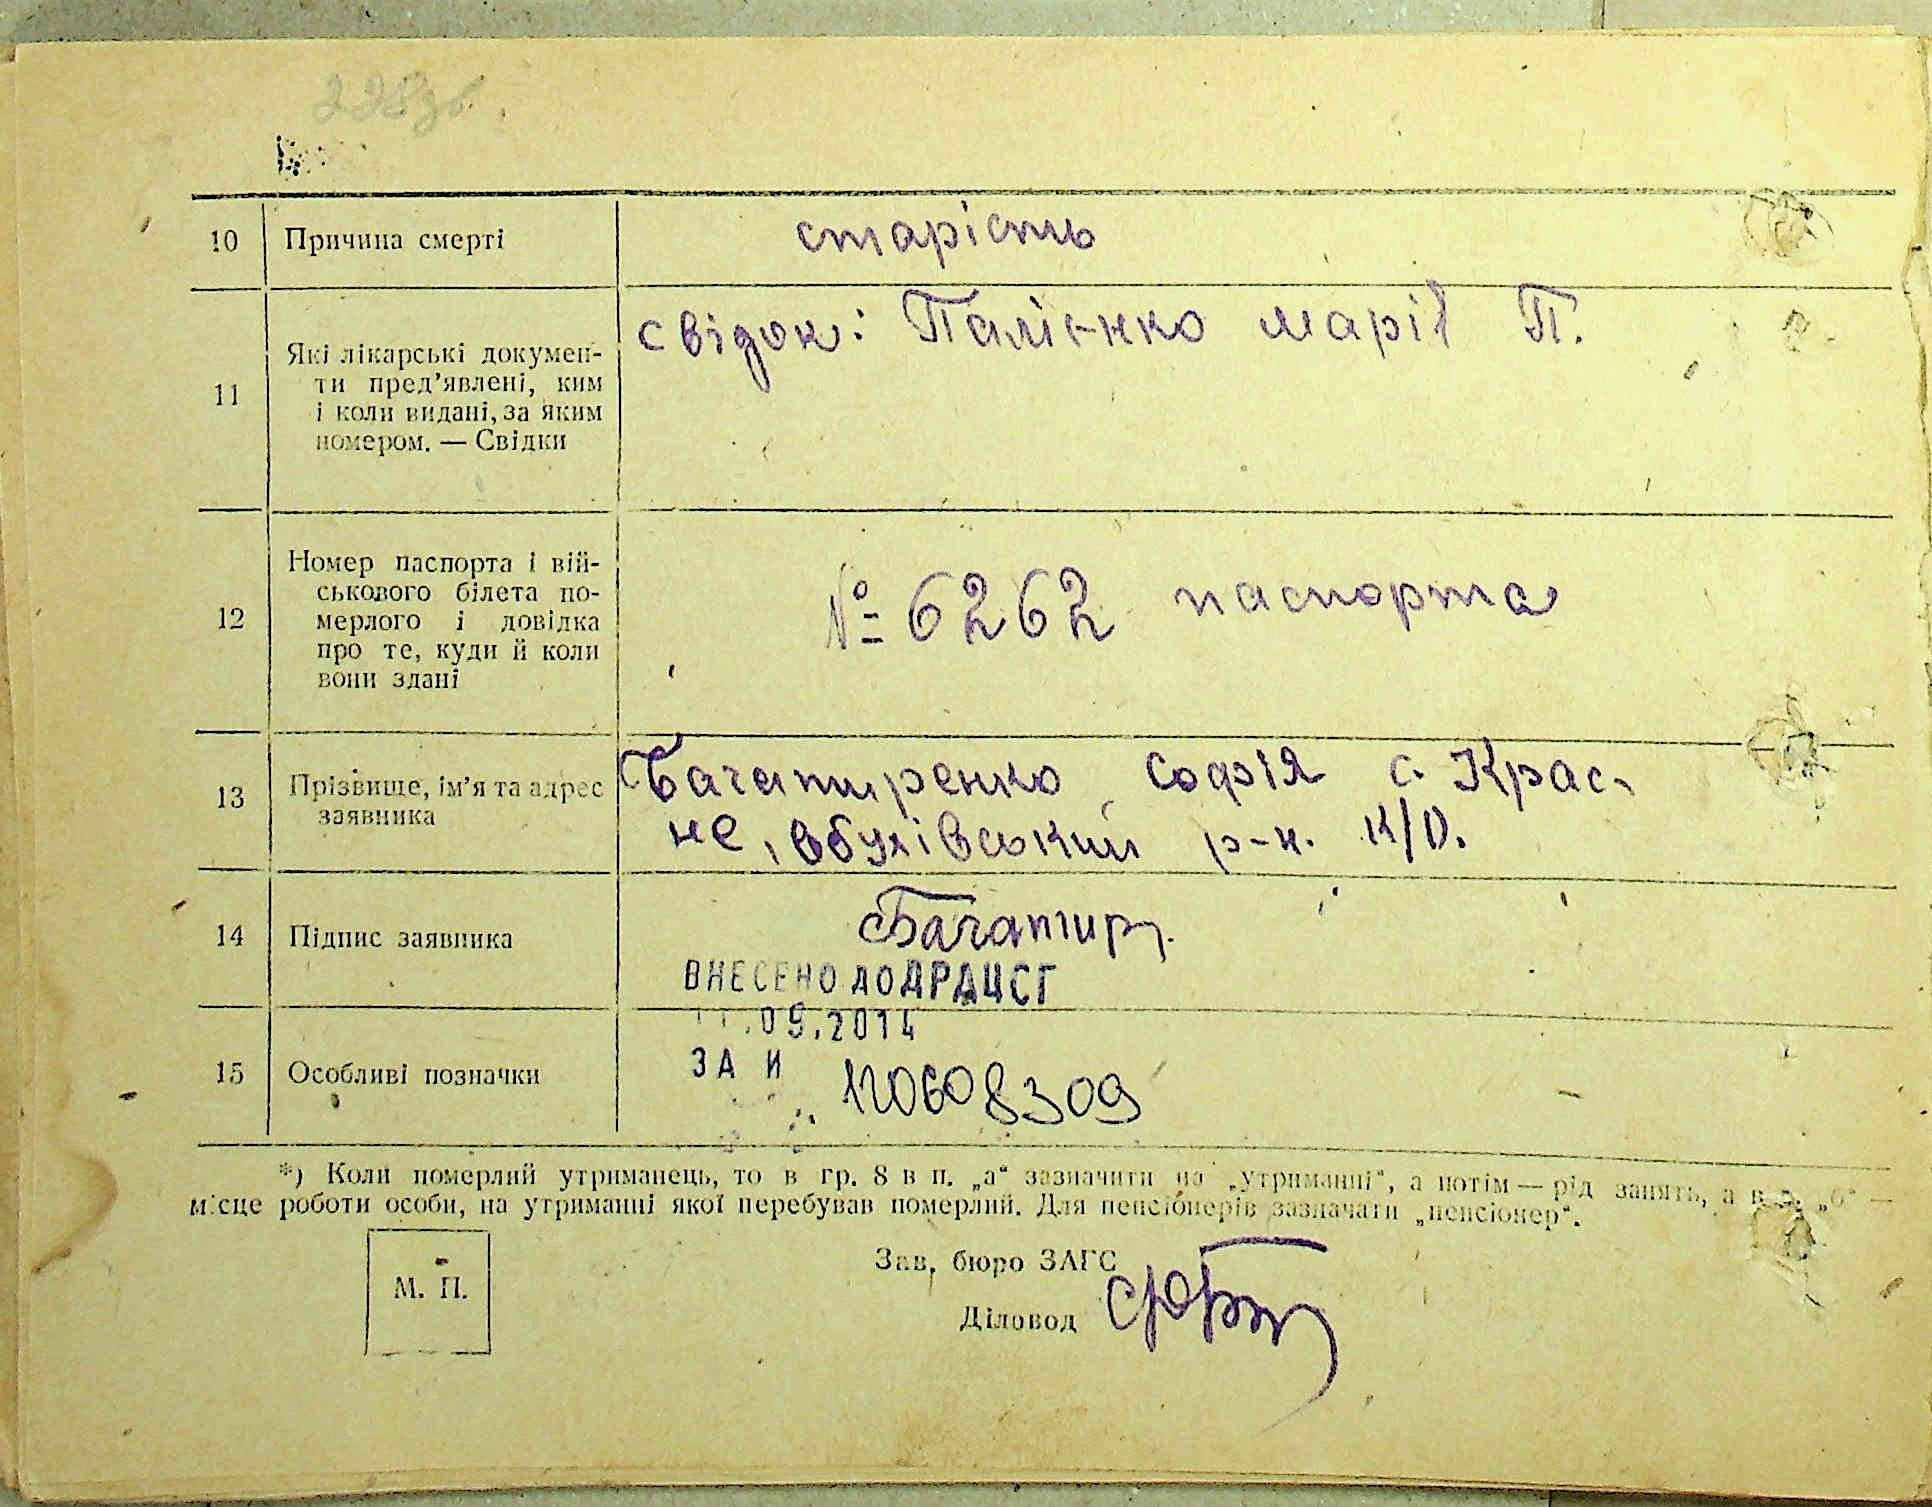 228зв.
10 Причина смерті старість
свідок: Палієнко марія П.
11 Які лікарські докумен-
ти пред’явлені, ким
і коли видані, за яким
номером. — Свідки
12 Номер паспорта і вій-
ськового білета по-
мерлого і довідка
про те, куди й коли
вони здані
№ 6262 паспорта
13 Прізвище, ім’я та адрес
заявника
Багатиренко софія с. Крас-
не, обухівський р-н. К/О.
14 Підпис заявника Багатир.
ВНЕСЕНО ДО ДРАЦСГ
.09.2014
15 Особливі позначки
ЗА И 120608309
*) Коли померлий утриманець, то в гр. 8 в п. „а“ зазначити на „утриманні“, а потім — рід занять, а в п. „б“ —
місце роботи особи, на утриманні якої перебував померлий. Для пенсіонерів зазначати „пенсіонер“.
М. П.
Зав. бюро ЗАГС
Діловод